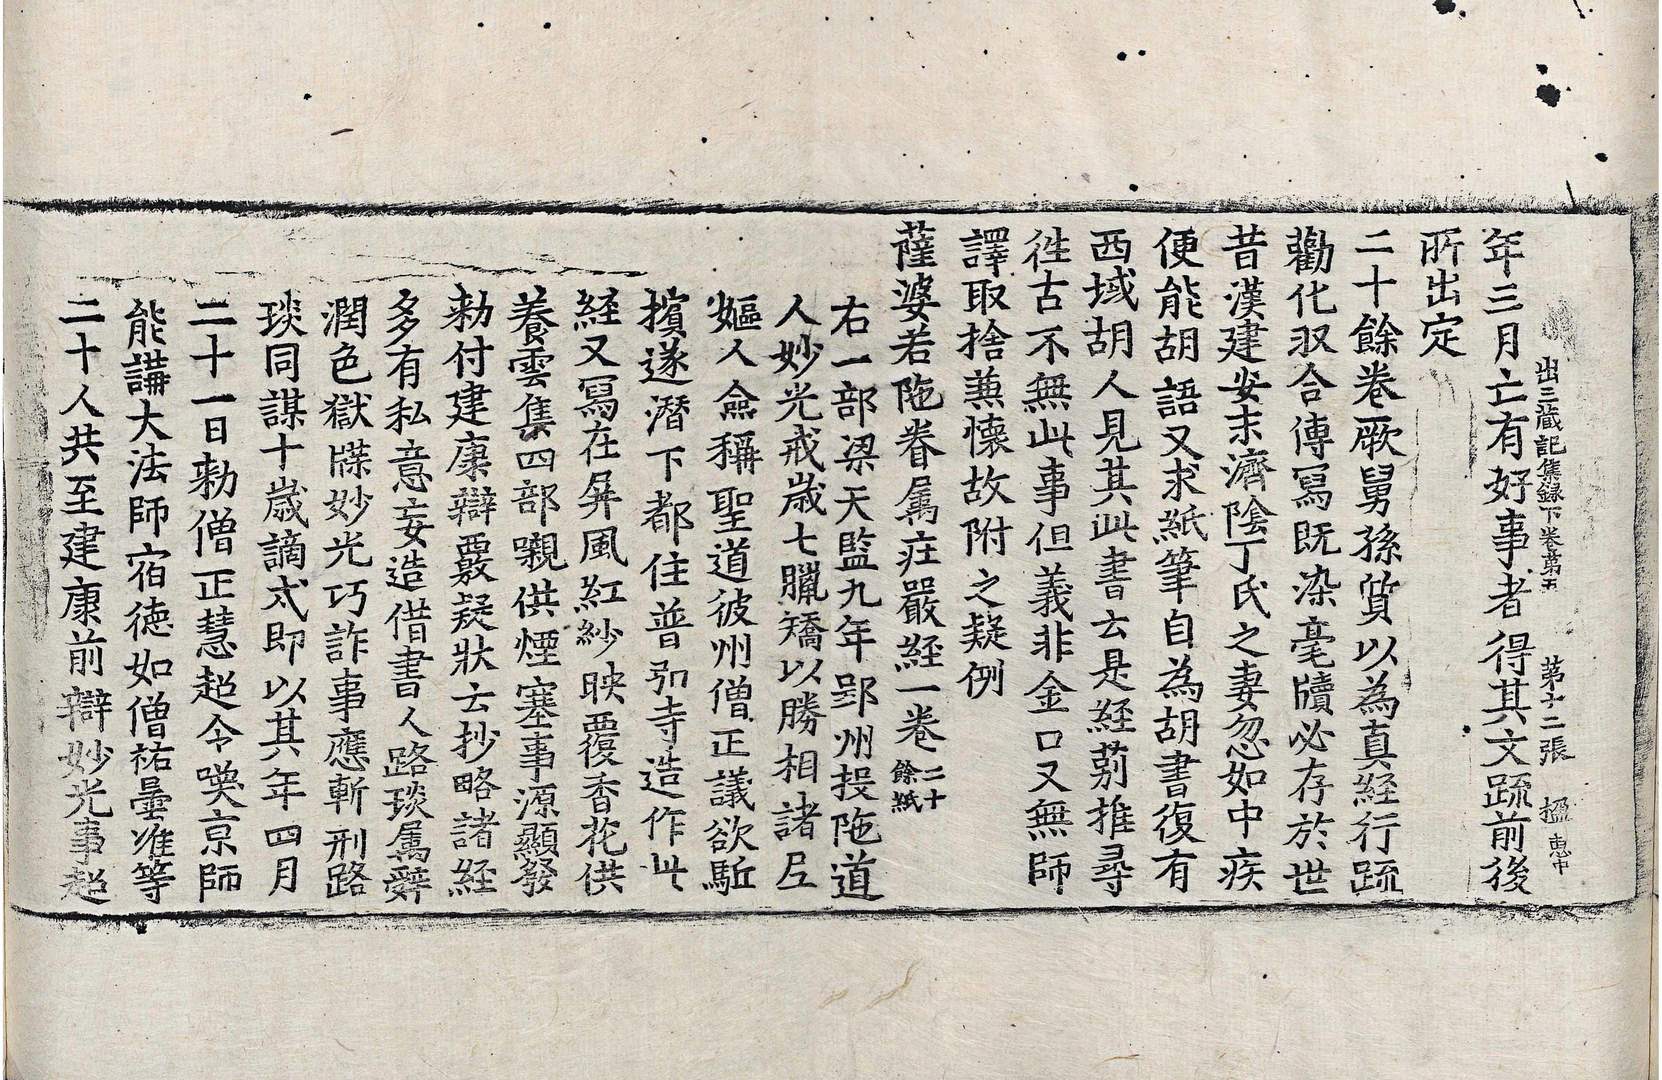 出三蔵記集録下卷苐五　苐十二張　揾　恵中
年三月亡有好事者得其文䟽前後
所出定
二十餘卷厥舅孫質以為真経行䟽
勸化収合傳寫既染毫牘必存於世
昔漢建安末濟隂丁氏之妻忽如中疾
便能胡語又求紙筆自為胡書復有
西域胡人見其此書云是経莂推尋
徃古不無此事但義非金口又無師
譯取捨蒹懷故附之疑例
薩婆若陁眷属㽵嚴経一卷二十餘紙
右一部梁天監九年郢州投陁道
人妙光戒歳七臘矯以勝相諸尼
嫗人僉稱聖道彼州僧正議欲駈
擯遂潛下都住普弘寺造作此
経又寫在屏風紅紗映覆香花供
養雲集四部嚫供煙塞事源顯發
勑付建康辯覈疑狀云抄略諸経
多有私意妄造借書人路琰属辭
潤色獄牒妙光巧詐事應斬刑路
琰同謀十歳謫戍即以其年四月
二十一日勑僧正慧超令喚京師
能講大法師宿德如僧祐曇准等
二十人共至建康前辯妙光事超